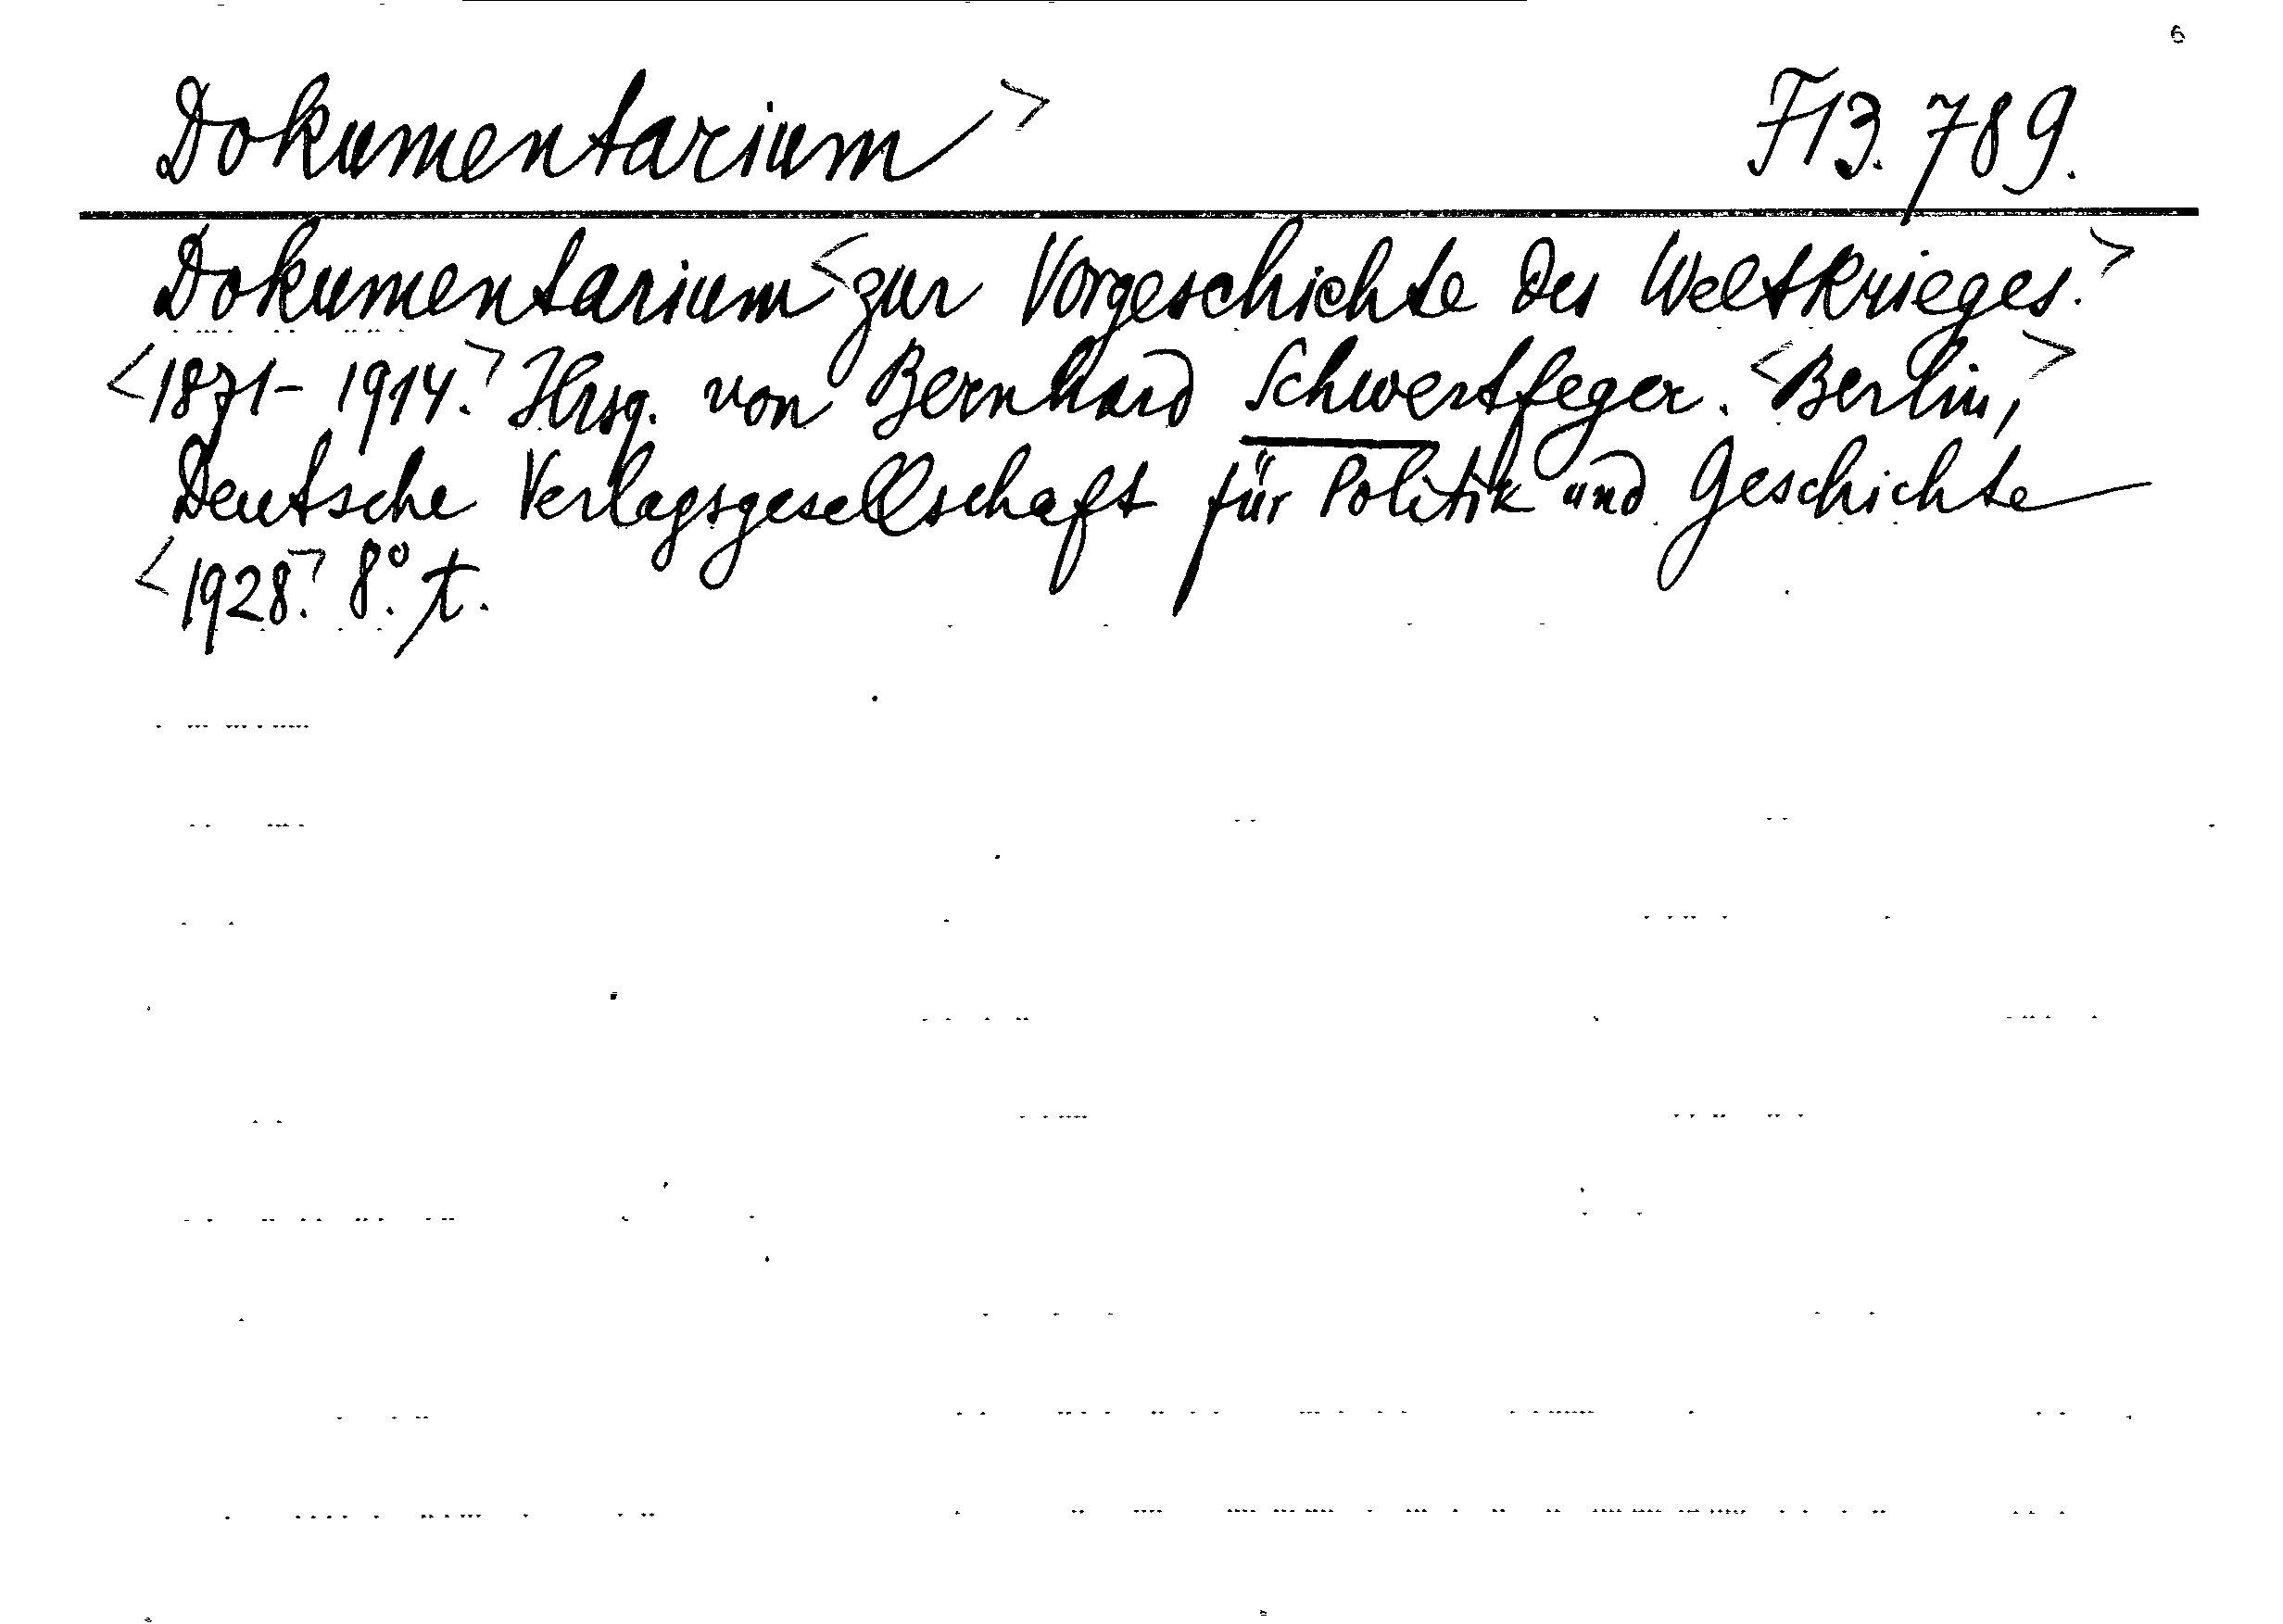 6
Dokumentarium> F13.789.
Dokumentarium <zur Vorgeschichte des Weltkrieges.>
<1871-1914.> Hrsg. von Bernhard Schwertfeger. <Berlin,>
Deutsche Verlagsgesellschaft für Politik und Geschichte
<1928.> 8°. t.